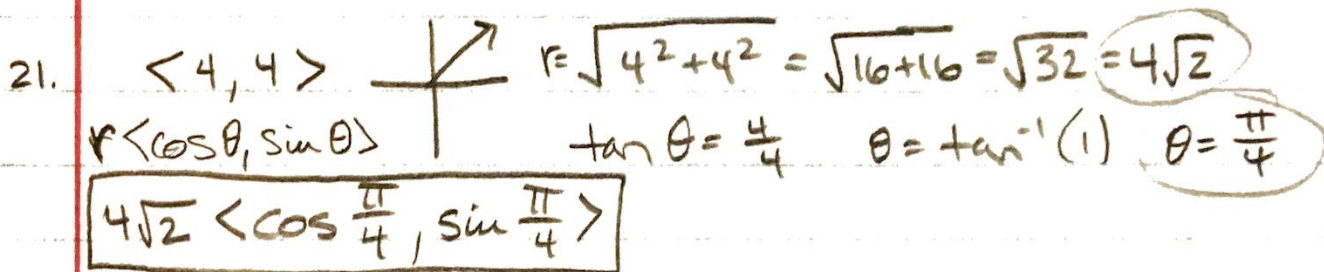 21. <4, 4> r=√(4²+4²) = √(16+16) = √32 = 4√2
r<cosθ, sinθ> tan θ = 4/4 θ = tan⁻¹(1) θ = π/4
4√2 <cos π/4, sin π/4>